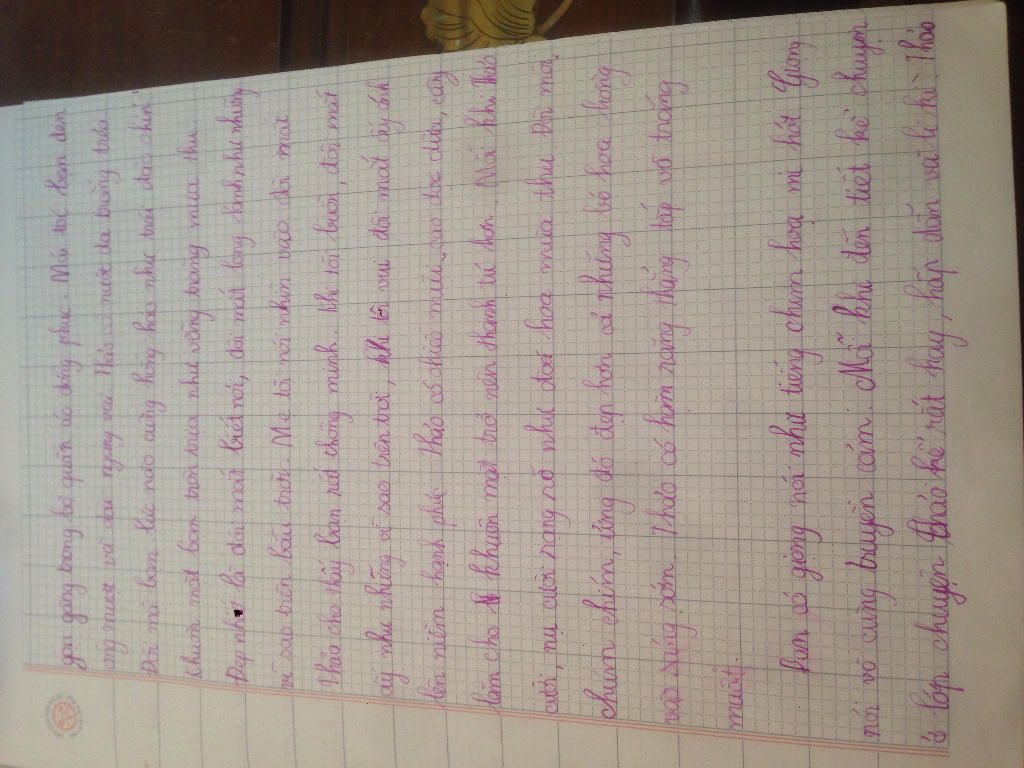 gọn gàng trong bộ quần áo đồng phục. Mái tóc bạn đen
óng mượt và dài ngang vai. Thảo có nước da trắng trẻo
Đôi má bạn lúc nào cũng hồng hào như trái đào chín
khuôn mặt bạn tròn tựa như vầng trăng mùa thu.
Đẹp nhất là đôi mắt biết nói, đôi mắt long lanh như những
vì sao trên bầu trời. Mẹ tôi nói nhìn vào đôi mắt
Thảo cho thấy bạn rất thông minh. Khi tôi buồn, đôi mắt
ấy như những vì sao trên trời, khi tôi vui đôi mắt ấy ánh
lên niềm hạnh phúc Thảo có chiếc mũi cao dọc dừa, càng
làm cho khuôn mặt trở nên thanh tú hơn. Mỗi khi Thảo
cười, nụ cười rạng rỡ như đoá hoa mùa thu. Đôi môi
chúm chím, ửng đỏ đẹp hơn cả những bó hoa hồng
vào sáng sớm. Thảo có hàm răng thẳng tắp và trắng
muốt.
bạn có giọng nói như tiếng chim hoạ mi hót Giọng
nói vô cùng truyền cảm. Mỗi khi đến tiết kể chuyện
ở lớp chuyện Thảo kể rất hay, hấp dẫn và li kì Thảo